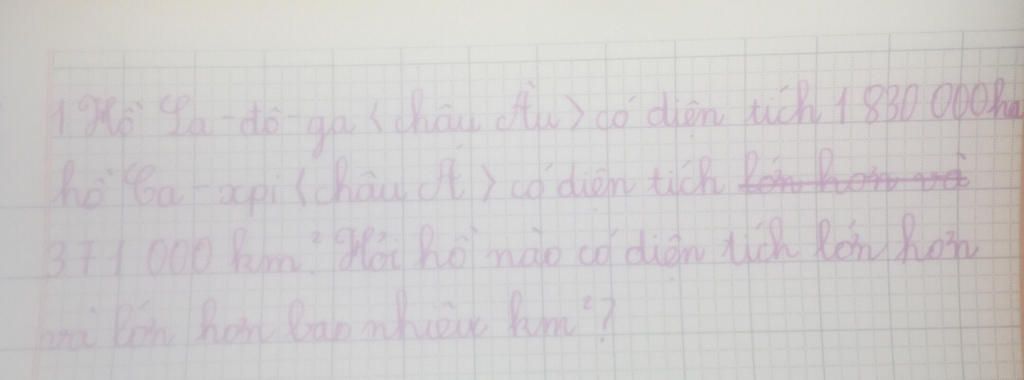 1 Hồ La-đô-ga (châu Âu) có diện tích 1 830 000 ha
hồ Ca-xpi (châu Á) có diện tích lớn hơn và
371 000 km². Hỏi hồ nào có diện tích lớn hơn
và lớn hơn bao nhiêu km²?